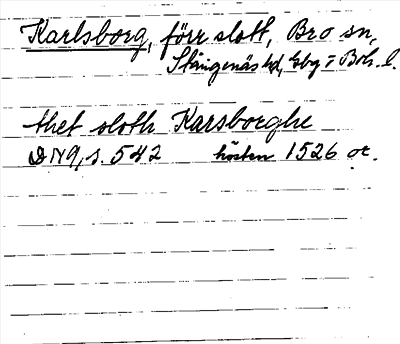 Karlsborg, förr slott, Bro sn,
Stångenäs hd, Gbg o Boh. l.
thet sloth Karsborghe
DN 9, s. 542 hösten 1526 or.